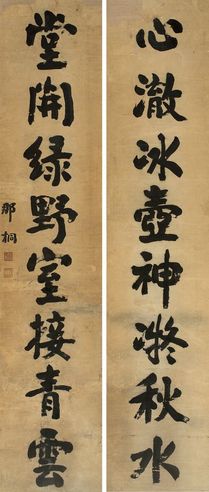 心澈冰壺神凝秋水
堂開绿野室接青雲
那桐